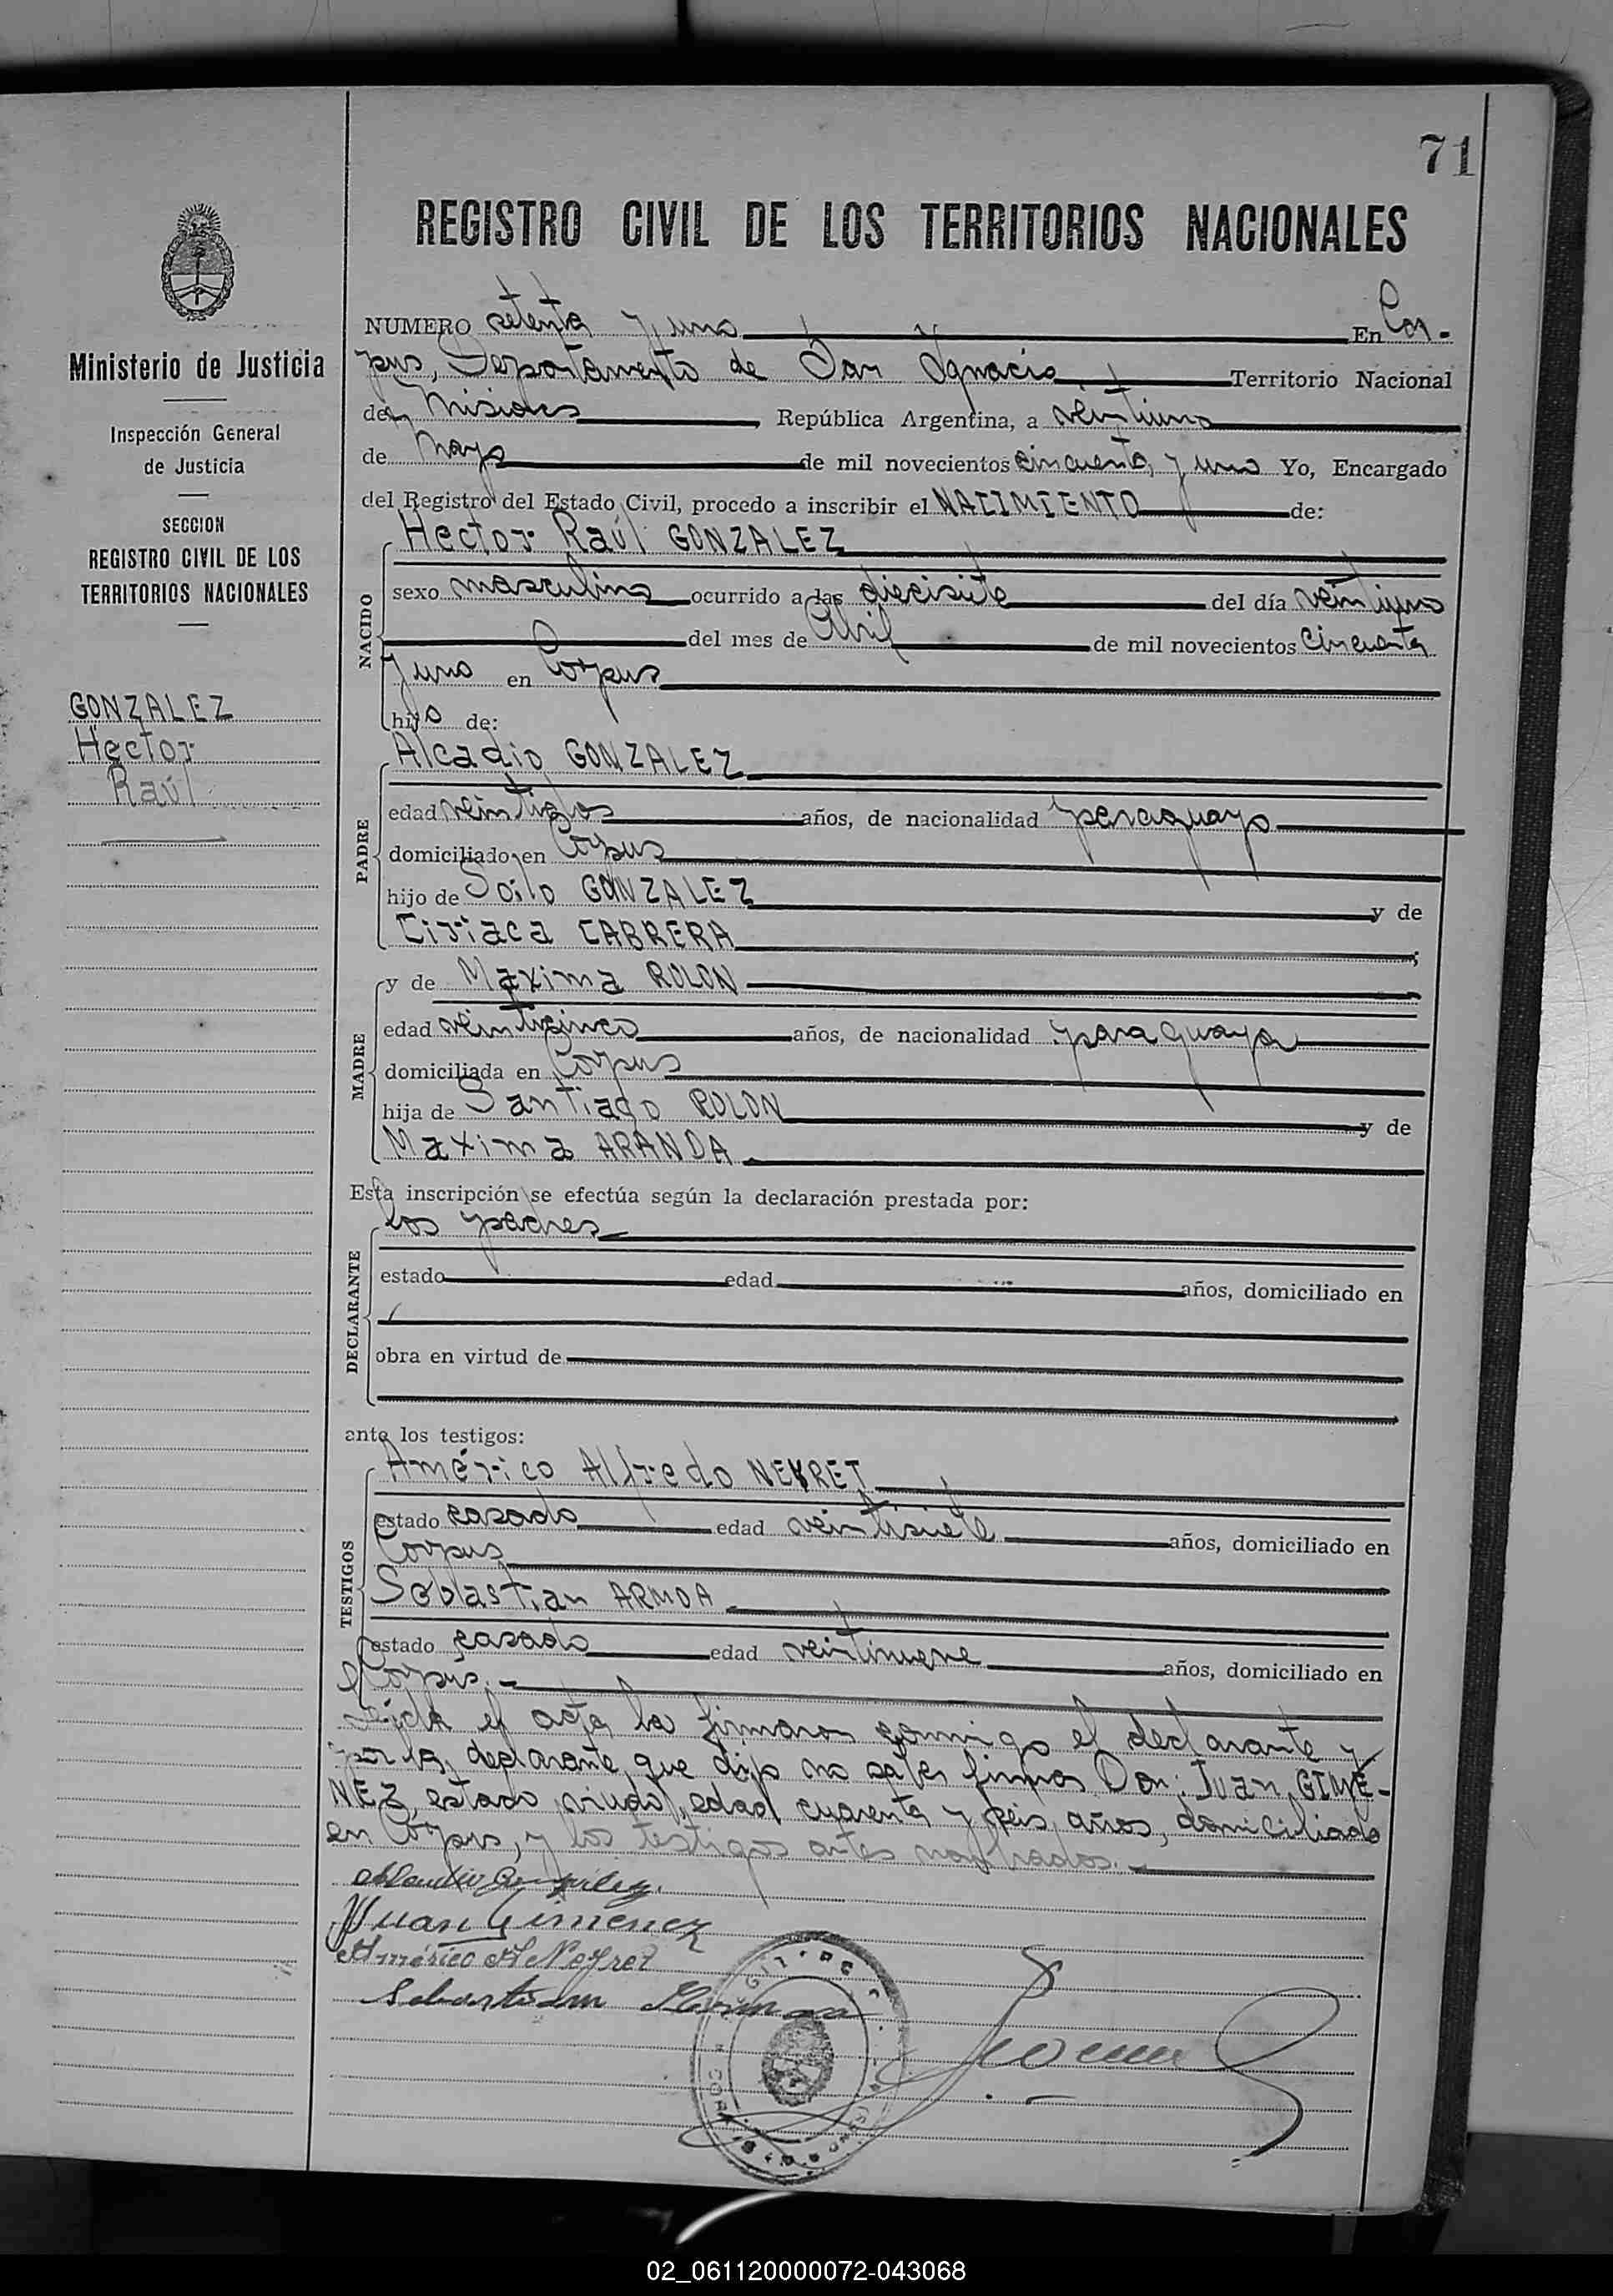 71
REGISTRO CIVIL DE LOS TERRITORIOS NACIONALES
Ministerio de Justicia
Inspección General
de Justicia
SECCION
REGISTRO CIVIL DE LOS
TERRITORIOS NACIONALES
GONZALEZ
Hector
Raúl
NUMERO setenta y uno En Cor-
pus, Departamento de San Ignacio Territorio Nacional
de Misiones República Argentina, a veintiuno
de Mayo de mil novecientos cincuenta y uno Yo, Encargado
del Registro del Estado Civil, procedo a inscribir el NACIMIENTO de:
NACIDO
Hector Raúl GONZALEZ
sexo masculino ocurrido a las diecisiete del día veintiuno
del mes de Abril de mil novecientos cincuenta
y uno en Corpus
hijo de:
PADRE
Alcadio GONZALEZ
edad veintidos años, de nacionalidad paraguayo
domiciliado en Corpus
hijo de Soilo GONZALEZ y de
Ciriaca CABRERA ;
MADRE
y de Maxima ROLON
edad veinticinco años, de nacionalidad paraguaya
domiciliada en Corpus
hija de Santiago ROLON y de
Maxima ARANDA
Esta inscripción se efectúa según la declaración prestada por:
DECLARANTE
los padres
estado edad años, domiciliado en
obra en virtud de
ante los testigos:
TESTIGOS
Américo Alfredo NEYRET
estado casado edad veintisiete años, domiciliado en
Corpus
Sebastian ARMOA
estado casado edad veintinueve años, domiciliado en
Corpus.-
Leida el acta la firmaron conmigo el declarante y
por la declarante, que dijo no saber firmar Don: Juan GIME-
NEZ, estado viudo, edad cuarenta y seis años, domiciliado
en Corpus, y los testigos antes nombrados.-
Juan Gimenez
Américo A Neyret
Sebastian
02_061120000072-043068